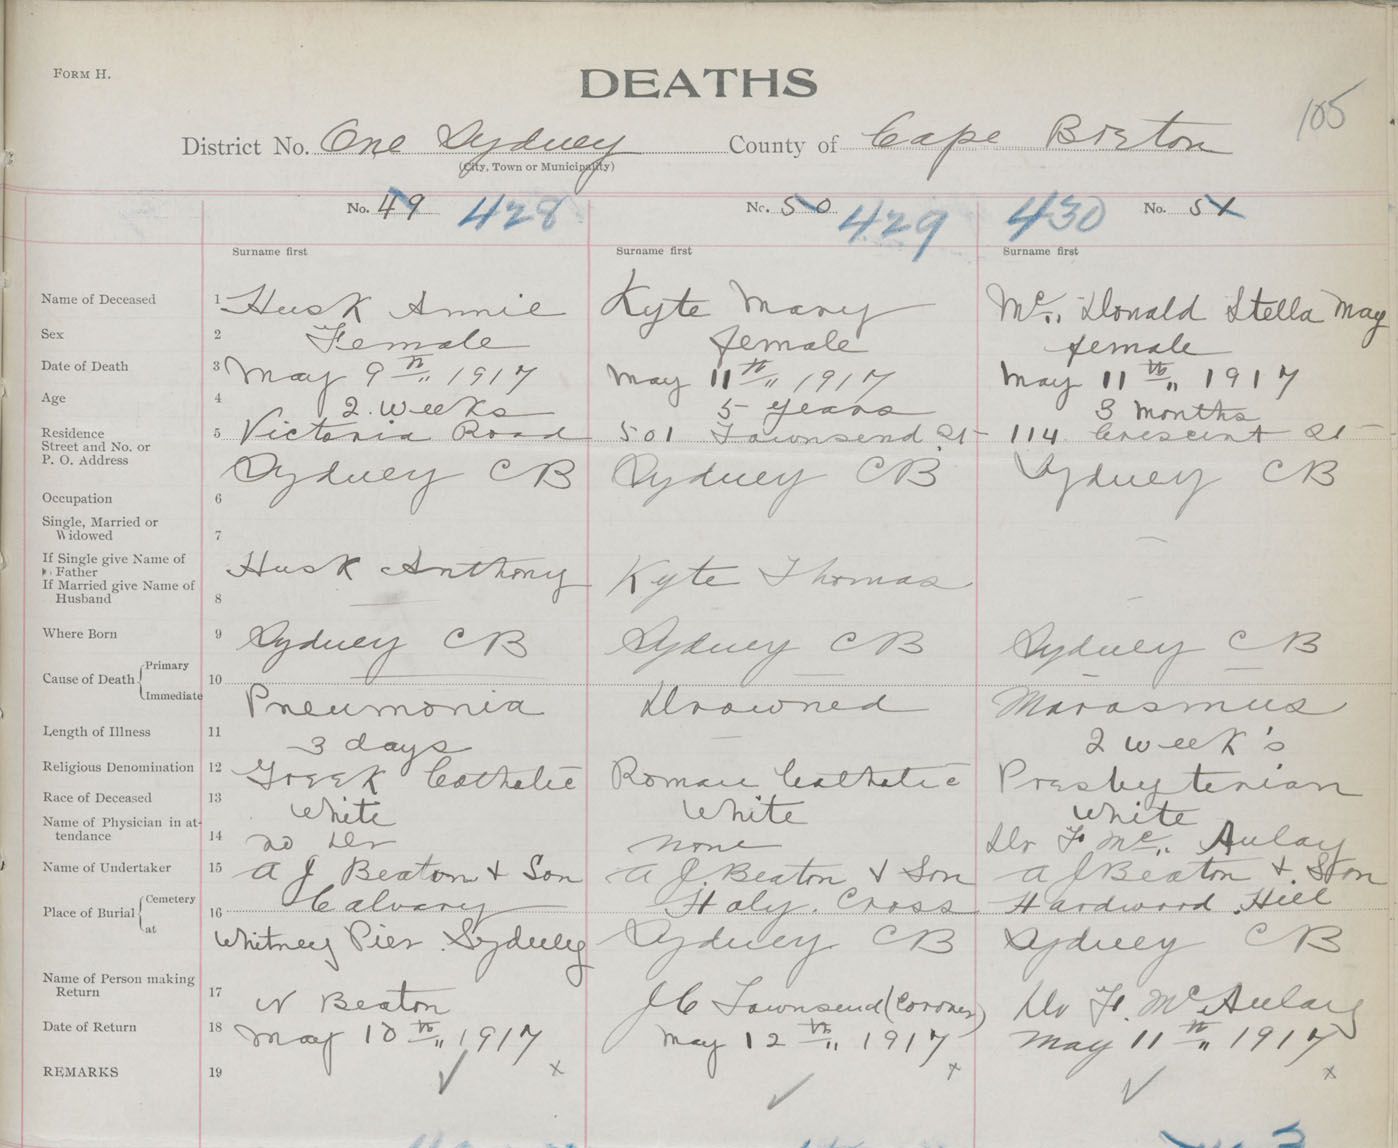 FORM H.
DEATHS
105
District No. One Sydney County of Cape Breton
(City, Town or Municipality)
No. 49 428 No. 50 429 430 No. 51
Surname first Surname first Surname first
Name of Deceased 1 Husk Annie Kyte Mary Mc,, Donald Stella May
Sex 2 Female female female
Date of Death 3 May 9th,, 1917 May 11th,, 1917 May 11th,, 1917
Age 4 2 weeks 5 years 3 months
Residence 5 Victoria Road 501 Townsend St 114 Crescent St
Street and No. or
P. O. Address Sydney CB Sydney CB Sydney CB
Occupation 6
Single, Married or
Widowed 7
If Single give Name of
Father Husk Anthony Kyte Thomas
If Married give Name of
Husband 8
Where Born 9 Sydney CB Sydney CB Sydney CB
Cause of Death Primary 10
Immediate Pneumonia Drowned Marasmus
Length of Illness 11 3 days 2 week's
Religious Denomination 12 Greek Catholic Roman Catholic Presbyterian
Race of Deceased 13 White White White
Name of Physician in at-
tendance 14 no Dr none Dr F Mc,, Aulay
Name of Undertaker 15 A J Beaton & Son A J. Beaton & Son A J Beaton &. Son
Place of Burial Cemetery 16 Calvary Holy. Cross Hardwood. Hill
at Whitney Pier Sydney Sydney CB Sydney CB
Name of Person making
Return 17 N Beaton J C Townsend (Coroner) Dr F. McAulay
Date of Return 18 May 10th,, 1917 May 12th,, 1917 May 11th,, 1917
REMARKS 19 ✓ x ✓ x ✓ x